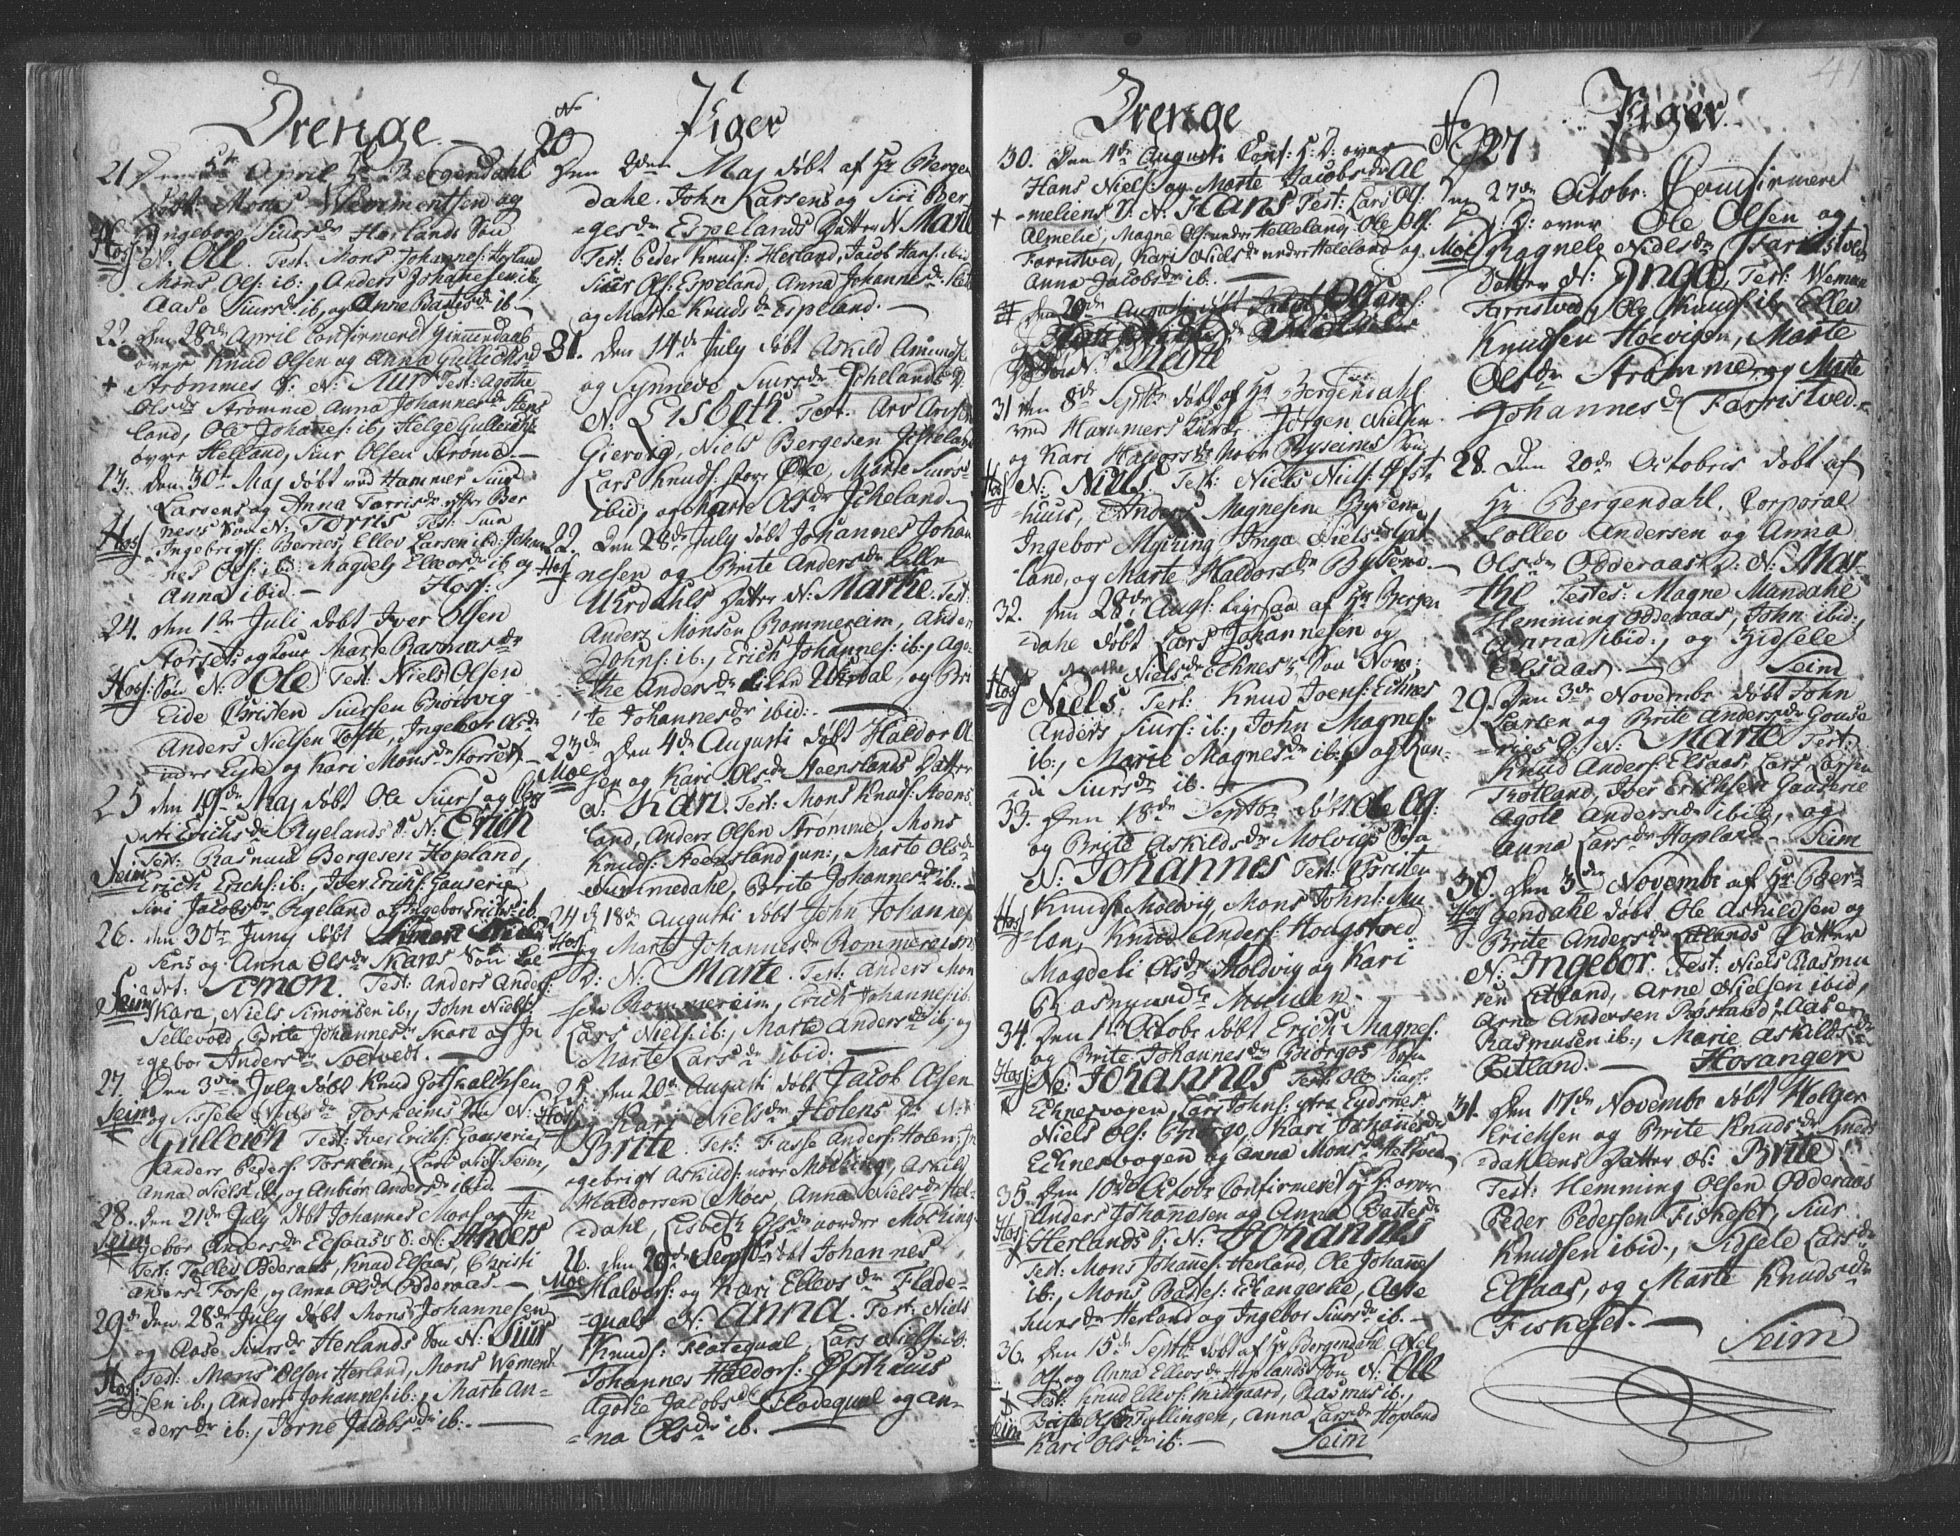 Drenge
21 Den April Hr Bergendahl
døbt Mons Wemmentsen og
Ingebor Siursdr Herlands Søn
Hosf
N. Ole. Test: Mons Johannes: Herland
Mons Ols: ib:, Anders Johannesen ib,
Aase Siursdr ib, og
22. den 28de April Confirmered Giemedaab
over Knud Olsen og Anna Gulleichsd
Strømmes S: N: Test: Agothe
Olsdr Strømme, Anna Johannesdr Hens
land, Ole Johanes: ib, Helge Gulleichs:
Helland, Siur Olsen Strøme.
23. den 30te Maj døbt ved Hammer Siur
Larsens og Anna Torrisdr
Søn N: Torris Test: Siur
Hosf
Ingebrigts: Bernes, Ellev Larsen ibd: Johan
nes Ols: ib: Magdely Elevsdr ib og
Anna ibid. Hosf:
24. den 1te Juli døbt Iver Olsen
Storset og kone Marte Rasmusdr
Hosf: Søn N: Ole Test: Niels Olsen
Eide Christen Siursen
Anders Nielsen Tofte, Ingebor Olsdr
indre Eyde og Kari Monsdr Storset
25 den 19de Maj døbt Ole Siurs og
Erichsdr Ryelands S: N: Erich
Seim
Test: Rasmus Bergesen Hopland,
Erich Erichs: ib:, Iver Erichs: Gauserie
Siri Jacobsdr Rygeland og Ingebor Erichsdr ib.
26. den 30te Juny døbt
sens og Anna Olsdr Skares Søn
Simon. Test: Anders Anders:
Seim
Skara, Niels Simonsen ib:, John Niels:
Sellevold, Brite Johannesdr Skare og In
gebor Andersdr Soltvedt.
27. Den 3die July døbt Knud Gotskalchsen
Seim og Sissele Nielsdr Torheims Søn N:
Gulleich Test: Iver Erichs: Gauserie,
Anders Peders: Torheim, Lars Niels: Seim,
Anna Nielsdr ib, og Anbiør Andersdr ibid
28. den 21de July døbt Johannes Mons: og In
Seim gebor Andersdr Elsaas S: N: Anders
Test: Tollev Odderaas, Knud Elsaas, Christi
Andersdr Fosse, og Anna Olsdr Odderaas.
29de den 28de July døbt Mons Johannesen
og Aase Siursdr Herlands Søn N: Siur
Hosf:
Test: Mons Olsen Herland, Mons Wemen
sen ib:, Anders Johannes: ib:, Marte An=
=dersdr ib:, Jorne Jacobsdr ib:.
No
20 Piger
Den 2den Maj døbt af Hr Bergen
dahl. John Larsens og Siri Ber=
=gesdr Espelands Datter N Marte
Test: Peder Knuds: Herland, Jacob Hans: ibid
Siur Ols: Espeland, Anna Johannesdr
og Marte Knudsdr Espeland.
31. Den 14de July døbt Askild Amunds:
og Synneve Siursdr Ickelands D:
N: Lisbeth. Test. Ars
Giervig, Niels Bergesen Ickeland
Lars Knuds: store Øxe, Marte Siurs
ibid; og Marte Olsdr Ickeland.
22. Den 28de July døbt Johannes Johan
Hosf nesen og Brite Andersdr Lille
Urdahls Datter N: Marthe. Test:
Anders Monsen Rommereim, Anders
Johns: ib:, Erich Johannes: ib:, Ago=
=the Andersdr lille Urdal, og Bri
te Johannesdr ibid:
23de Den 4de Augusti døbt Haldor A
Moe sen og Kari Olsdr Steenslands Datter
N: Kari. Test: Mons Knuds: Steens
land, Anders Olsen Strømme, Mons
Knuds: Steensland jun:, Marte Olsdr
Rummedahl, Brite Johannesdr ib:.
24 d 18de Augusti døbt John Johannes
Hosf og Marte Johannesdr Rommereim
D: N: Marte. Test: Anders Mon
sen Rommereim, Erich Johannes: ib:
Lars Niels: ib:, Marte Andersdr ib; og
Marte Larsdr ibid:
25. den 20de Augusti døbt Jacob Olsen
Hosf og Kari Nielsdr Holens D: N:
Brite. Test: Fasse Anders: Holen, In
gebrigt Askilds: nore Møching, Askild
Haldorsen Møes, Anna Nielsdr Hel=
=dahl, Lisbeth Olsdr nordre Moching
26. den 29de Septbr døbt Johannes
Moe Halvors: og Kari Ellevsdr Flade=
=quals N: Anna. Test: Niels
Knuds: Flatequal, Lars Niels: ib:
Johannes Haldors: Øfsthuus
Agothe Jacobsdr Fladequal og An=
=na Olsdr ib.
Drenge
30. Den 4de Augusti Conf: H: D: over
Hans Niels: og Marte Jacobsdr Al
=meliens S: N: Hans Test: Lars Ols:
Almelie, Magne Ols: under Helleland, Ole Ols:
Farristved, Kari Nielsdr under Heleland og
Anna Jacobsdr ib.
den 20de Augusti døbt Jacob Olsen
31 den 8de Septbr døbt af Hr Bergendahl
ved Hammers Kirke Jørgen Nielsen
og Kari Haldorsdr Nore Byseims Søn
Hosf N: Niels Test: Niels Niels: Øfst
huus, Anders Magnesen Byseme
Ingebor Myhring Inga Nielsdr
land, og Marte Haldorsdr Byseme.
32. den 28de Aug: ligesaa af Hr Bergen
=dahl døbt Lars Johannesen og
Agothe Nielsdr Echnes's Søn Nom:
Hosf
Niels. Test: Knud Joens: Echnes
Anders Siurs: ib:, John Magnes:
ib:, Marie Magnesdr ib: og Ran
di Siursdr ib.
33. Den 18de Septbr døbt Ole Og:
og Brite Askildsdr Molvigs Søn
N: Johannes Test: Christen
Hosf
Knuds: Molvig, Mons Johns: Mu
len, Knud Anders: Hougstved
Magdeli Olsdr Moldvig og Kari
Rasmundsdr Mulen.
34. Den 1te Octobr døbt Erich Magnes:
og Brite Johannesdr Biørgos Søn
Hosf: N: Johannes Test: Ole Siurs:
Echnesvogen, Lars Johns: ytre Eydsnes
Niels Ols: Biørgo, Kari Johannesdr
Echnesvogen og Anna Monsdr
35. Den 10de Octobr Confirmeret H: D: over
Anders Johannesen og Anna Battesdr
Hosf Herlands S: N: Johannes
Test: Mons Johannes: Herland, Ole Johannes
ib:, Mons Battes: Echangerlie, Aase
Siursdr Herland og Ingebor Siursdr ib.
36. Den 15de Septbr døbt af Hr Bergendahl Axel
Ols: og Anna Ellevsdr Hoplands Søn N: Ole
Test: Knud Ellevs: Midgaard, Rasmus ib:,
Seim Fyllingen, Anna Larsdr Hopland
Kari Olsdr ib. Seim
41
No 27 Piger.
Den 27de Octobr. Confirmeret
H: D: over Ole Olsen og
Moe Rognele Nielsdr Farristved
Datter N: Inga, Test: Weman
Farristved, Ole Knuds: ib, Ellev
Knudsen Hoevigen, Marte
Olsdr Strømme, og Marte
Johannesdr Farristved.
28. Den 20de Octobris døbt af
Hr Bergendahl. Corporal
Tollev Andersen og Anna
Olsdr Odderaas D: N: Mar=
the Testes: Magne Mundahl
Hemming Odderaas, John ibid:,
Anna ibid:, og Zidsele
Elsaas Seim
29. Den 3de Novembr døbt John
Larsen og Brite Andersdr Gause
=ries D: N: Marte Test:
Knud Anders: Elsaas, Lars Larsen
Trotland, Iver Erichsen Gauserie
Agote Andersdr ibid, og
Anna Larsdr Hopland. Seim
30. Den 3die Novembr af Hr Ber=
Hosf gendahl døbt Ole Askildsen og
Brite Andersdr Eitlands Datter
N: Ingebor. Test: Niels Rasmu
sen Eitland, Arne Nielsen ibid,
Arne Andersen Røsland, Aase
Rasmusen ib:, Marie Askildsdr
Eitland. Hosanger
31. Den 17de Novembr døbt Holger
Erichsen og Brite Knudsdr
=dahlens Datter N: Brite
Test: Hemming Olsen Odderaas
Peder Pedersen Fiskeset, Siur
Knudsen ibid:, Sidsele Larsdr
Elsaas, og Marte Knudsdr
Fiskeset. Seim